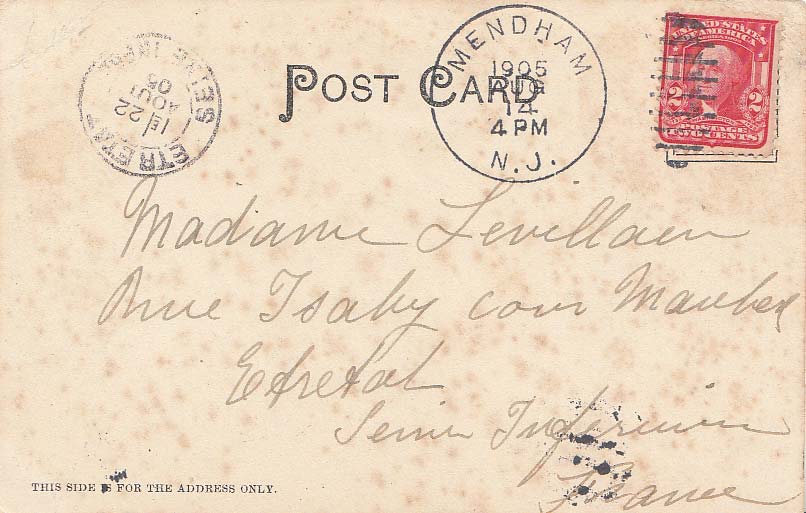 POST CARD
MENDHAM
1905
AUG
14
4 PM
N. J.
UNITED STATES
OF AMERICA
2 2
POSTAGE
TWO CENTS
ETRETAT
1E/22
AOUT
05
SEINE INFRE
Madame Levillain
Rue Isaby cour Maubert
Etretat
Seine Inferieure
France
THIS SIDE IS FOR THE ADDRESS ONLY.